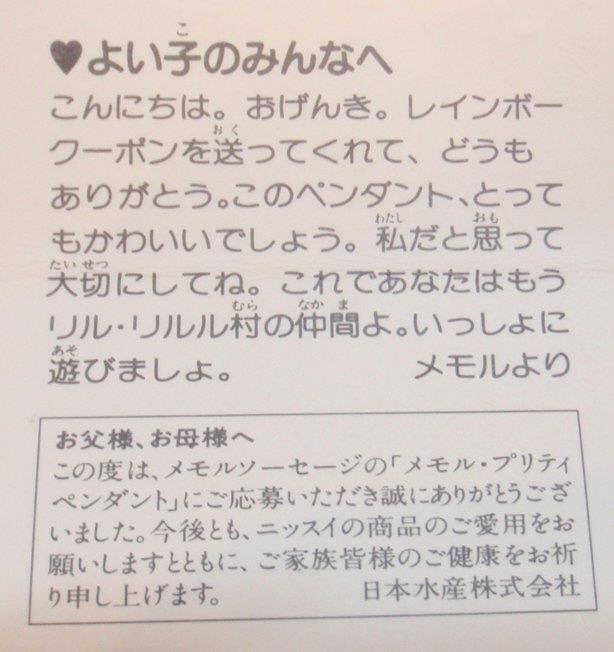 ♥よい子のみんなへ
こんにちは。おげんき。レインボー
クーポンを送ってくれて、どうも
ありがとう。このペンダント、とって
もかわいいでしょう。私だと思って
大切にしてね。これであなたはもう
リル・リルル村の仲間よ。いっしょに
遊びましょ。 メモルより
お父様、お母様へ
この度は、メモルソーセージの「メモル・プリティ
ペンダント」にご応募いただき誠にありがとうござ
いました。今後とも、ニッスイの商品のご愛用をお
願いしますとともに、ご家族皆様のご健康をお祈
り申し上げます。 日本水産株式会社